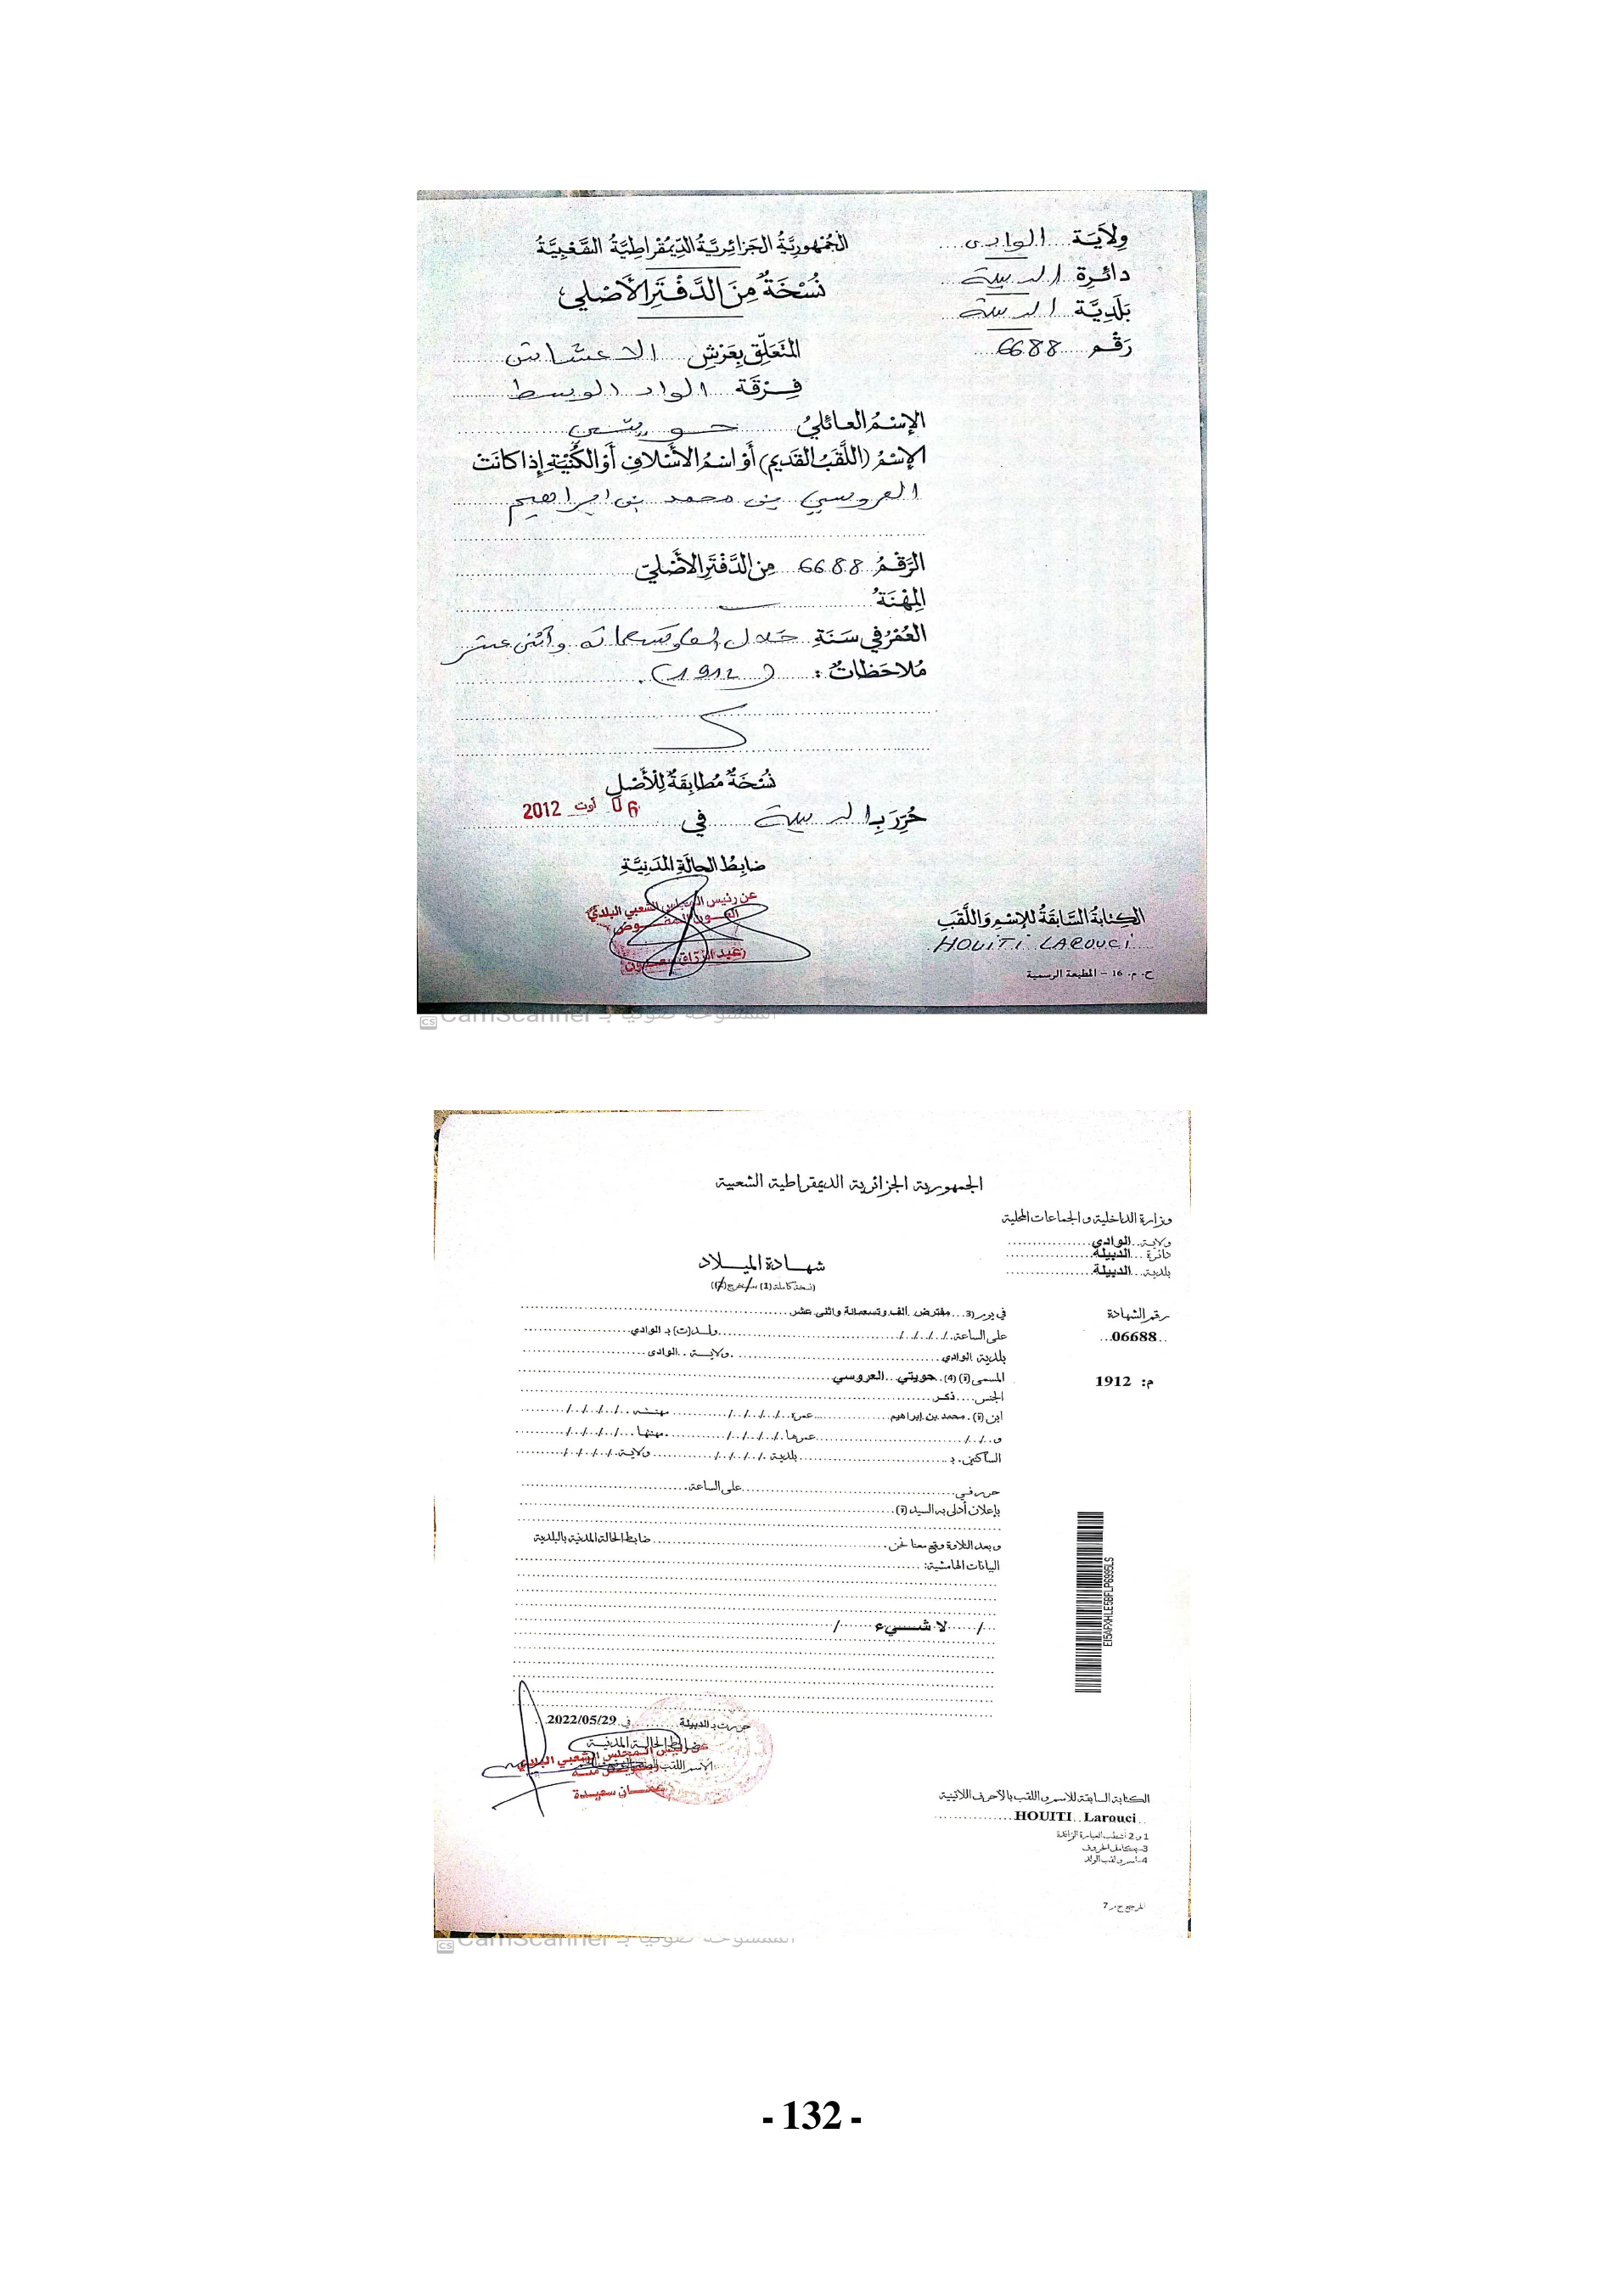 الجُمْهُورِيَّةُ الجَزائِرِيَّةُ الدِّيمُقْراطِيَّةُ الشَّعْبِيَّةُ
وِلاَيَة الوادي
دائِرة الدبيلة
بَلَدِيَّة الدبيلة
رَقْم 6688
نُسْخَةٌ مِنَ الدَّفْتَرِ الأَصْلي
المتَعَلِّق بِعَرْشِ الاعشاش
فِرْقَة الواد الوسط
الإسْمُ العائليُ حويتي
الإسْمُ (اللَّقَبُ القَديم) أَوْ اسْمُ الأَسْلافِ أَوْ الكُنْيَةِ إذا كانَتْ
العروسي بن محمد بن ابراهيم
الرَّقْمُ 6688 مِن الدَّفْتَرِ الأَصْليّ
المِهْنَةُ
العُمْرُ في سَنَةِ خلال الف وتسعمائة واثنى عشر
مُلاحَظاتٌ : (1912).
نُسْخَةٌ مُطابِقَةٌ لِلْأَصْلِ
حُرِّرَ بِـ الدبيلة في 06 أوت 2012
ضابِطُ الحالَةِ المَدَنِيَّةِ
عن رئيس المجلس الشعبي البلدي
العون المفوض
الكِتابَةُ السَّابَقَةُ لِلإسْمِ وَاللَّقَبِ
HOUITI LAROUCI
ح. م. 16 – المطبعة الرسمية
CamScanner الممسوحة ضوئيا بـ
الجمهورية الجزائرية الديمقراطية الشعبية
وزارة الداخلية و الجماعات المحلية
ولاية الوادي
دائرة الدبيلة
بلدية الدبيلة
شهادة الميلاد
(نسخة كاملة (1) مستخرج (2))
رقم الشهادة
06688
م: 1912
في يوم (3) مفترض ألف وتسعمائة واثنى عشر
على الساعة /././././ ولد(ت) بـ الوادي
بلدية الوادي ولاية الوادي
المسمى (ة) (4) حويتي العروسي
الجنس ذكر
ابن (ة) محمد بن إبراهيم عمره /././././ مهنته /././././
و /././ عمرها /././././ مهنتها /././././
الساكنين بـ بلدية /././././ ولاية /././././
حرر في على الساعة
بإعلان أدلى به السيد (ة)
و بعد التلاوة وقع معنا نحن ضابط الحالة المدنية بالبلدية
البيانات الهامشية:
/ لا شيء /
حررت بـ الدبيلة في 2022/05/29
ضابط الحالة المدنية
عن رئيس المجلس الشعبي البلدي
الكتابة السابقة للاسم و اللقب بالأحرف اللاتينية
HOUITI Larouci
1 و 2 أشطب العبارة الزائدة
3- بكامل الحروف
4- اسم و لقب الولد
المرجع ح م 7
CamScanner الممسوحة ضوئيا بـ
- 132 -